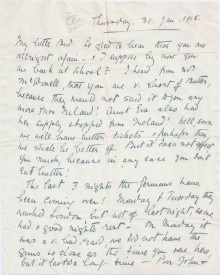 Thursday 31. Jan. 1918.
My little Bird. So glad to hear that you are
allright again - & I suppose by now you
are back at School? I heard from Mrs
that you are v. short of Butter,
because they would not send it to you any
more from Ireland! Aunt Eva also had
her supply stopped from Ireland! Well soon
we will have butter tickets & perhaps they
we shall be better off. But it does not affect
you much, because in any case you don't
eat butter!
The last 3 nights the Germans have
been coming over! Monday & Tuesday they
reached London but not last night, some
had a good nights rest. On Monday it
was a v. bad raid, we did not have the
guns so close as the time you were here
but it lasted a long time - Poor John &